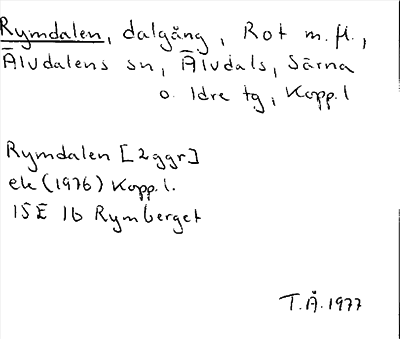 Rymdalen, dalgång, Rot m.fl.,
Älvdalens sn, Älvdals, Särna
o. Idre tg, Kopp.l
Rymdalen [2ggr]
ek (1976) Kopp.l.
15E 1b Rymberget
T.Å.1977